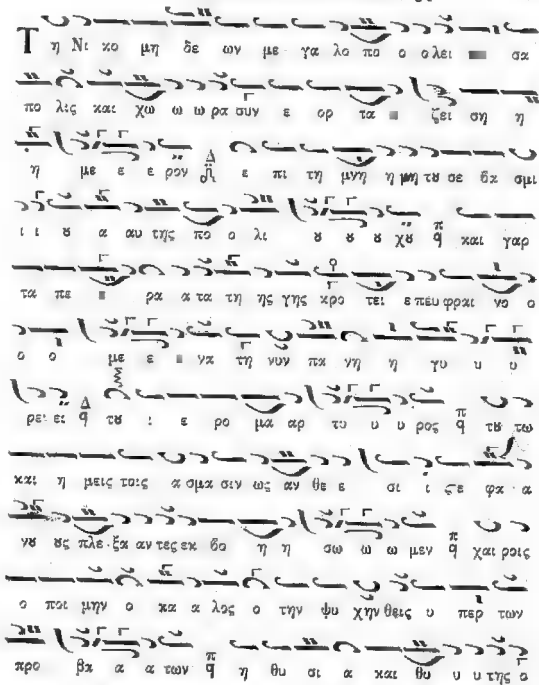 Τ η Νι κο μη δε ων με γα λο πο ο ο λει σα
πο λις και χω ω ω ρα συν ε ορ τα ζει ση η
η με ε ε ρον Δ ε πι τη μνη η μη τȣ σε βα σμι
ι ι ȣ α αυ της πο ο λι ȣ ȣ ȣ χȣ π q και γαρ
τα πε ρα α τα τη ης γης κρο τει ε πευ φραι νο ο
ο ο με ε να τη νυν πα νη η γυ υ υ
ρει ει Δ q τȣ ι ε ρο μα αρ τυ υ υ ρος π q τȣ τω
και η μεις τοις α σμα σιν ως αν θε ε σι ι ζε φα α
νȣ ȣς πλε ξα αν τες εκ βο η η σω ω ω μεν π q χαι ροις
ο ποι μην ο κα α λος ο την ψυ χην θεις υ περ των
προ βα α α των π q η θυ σι α και θυ υ υ της ο